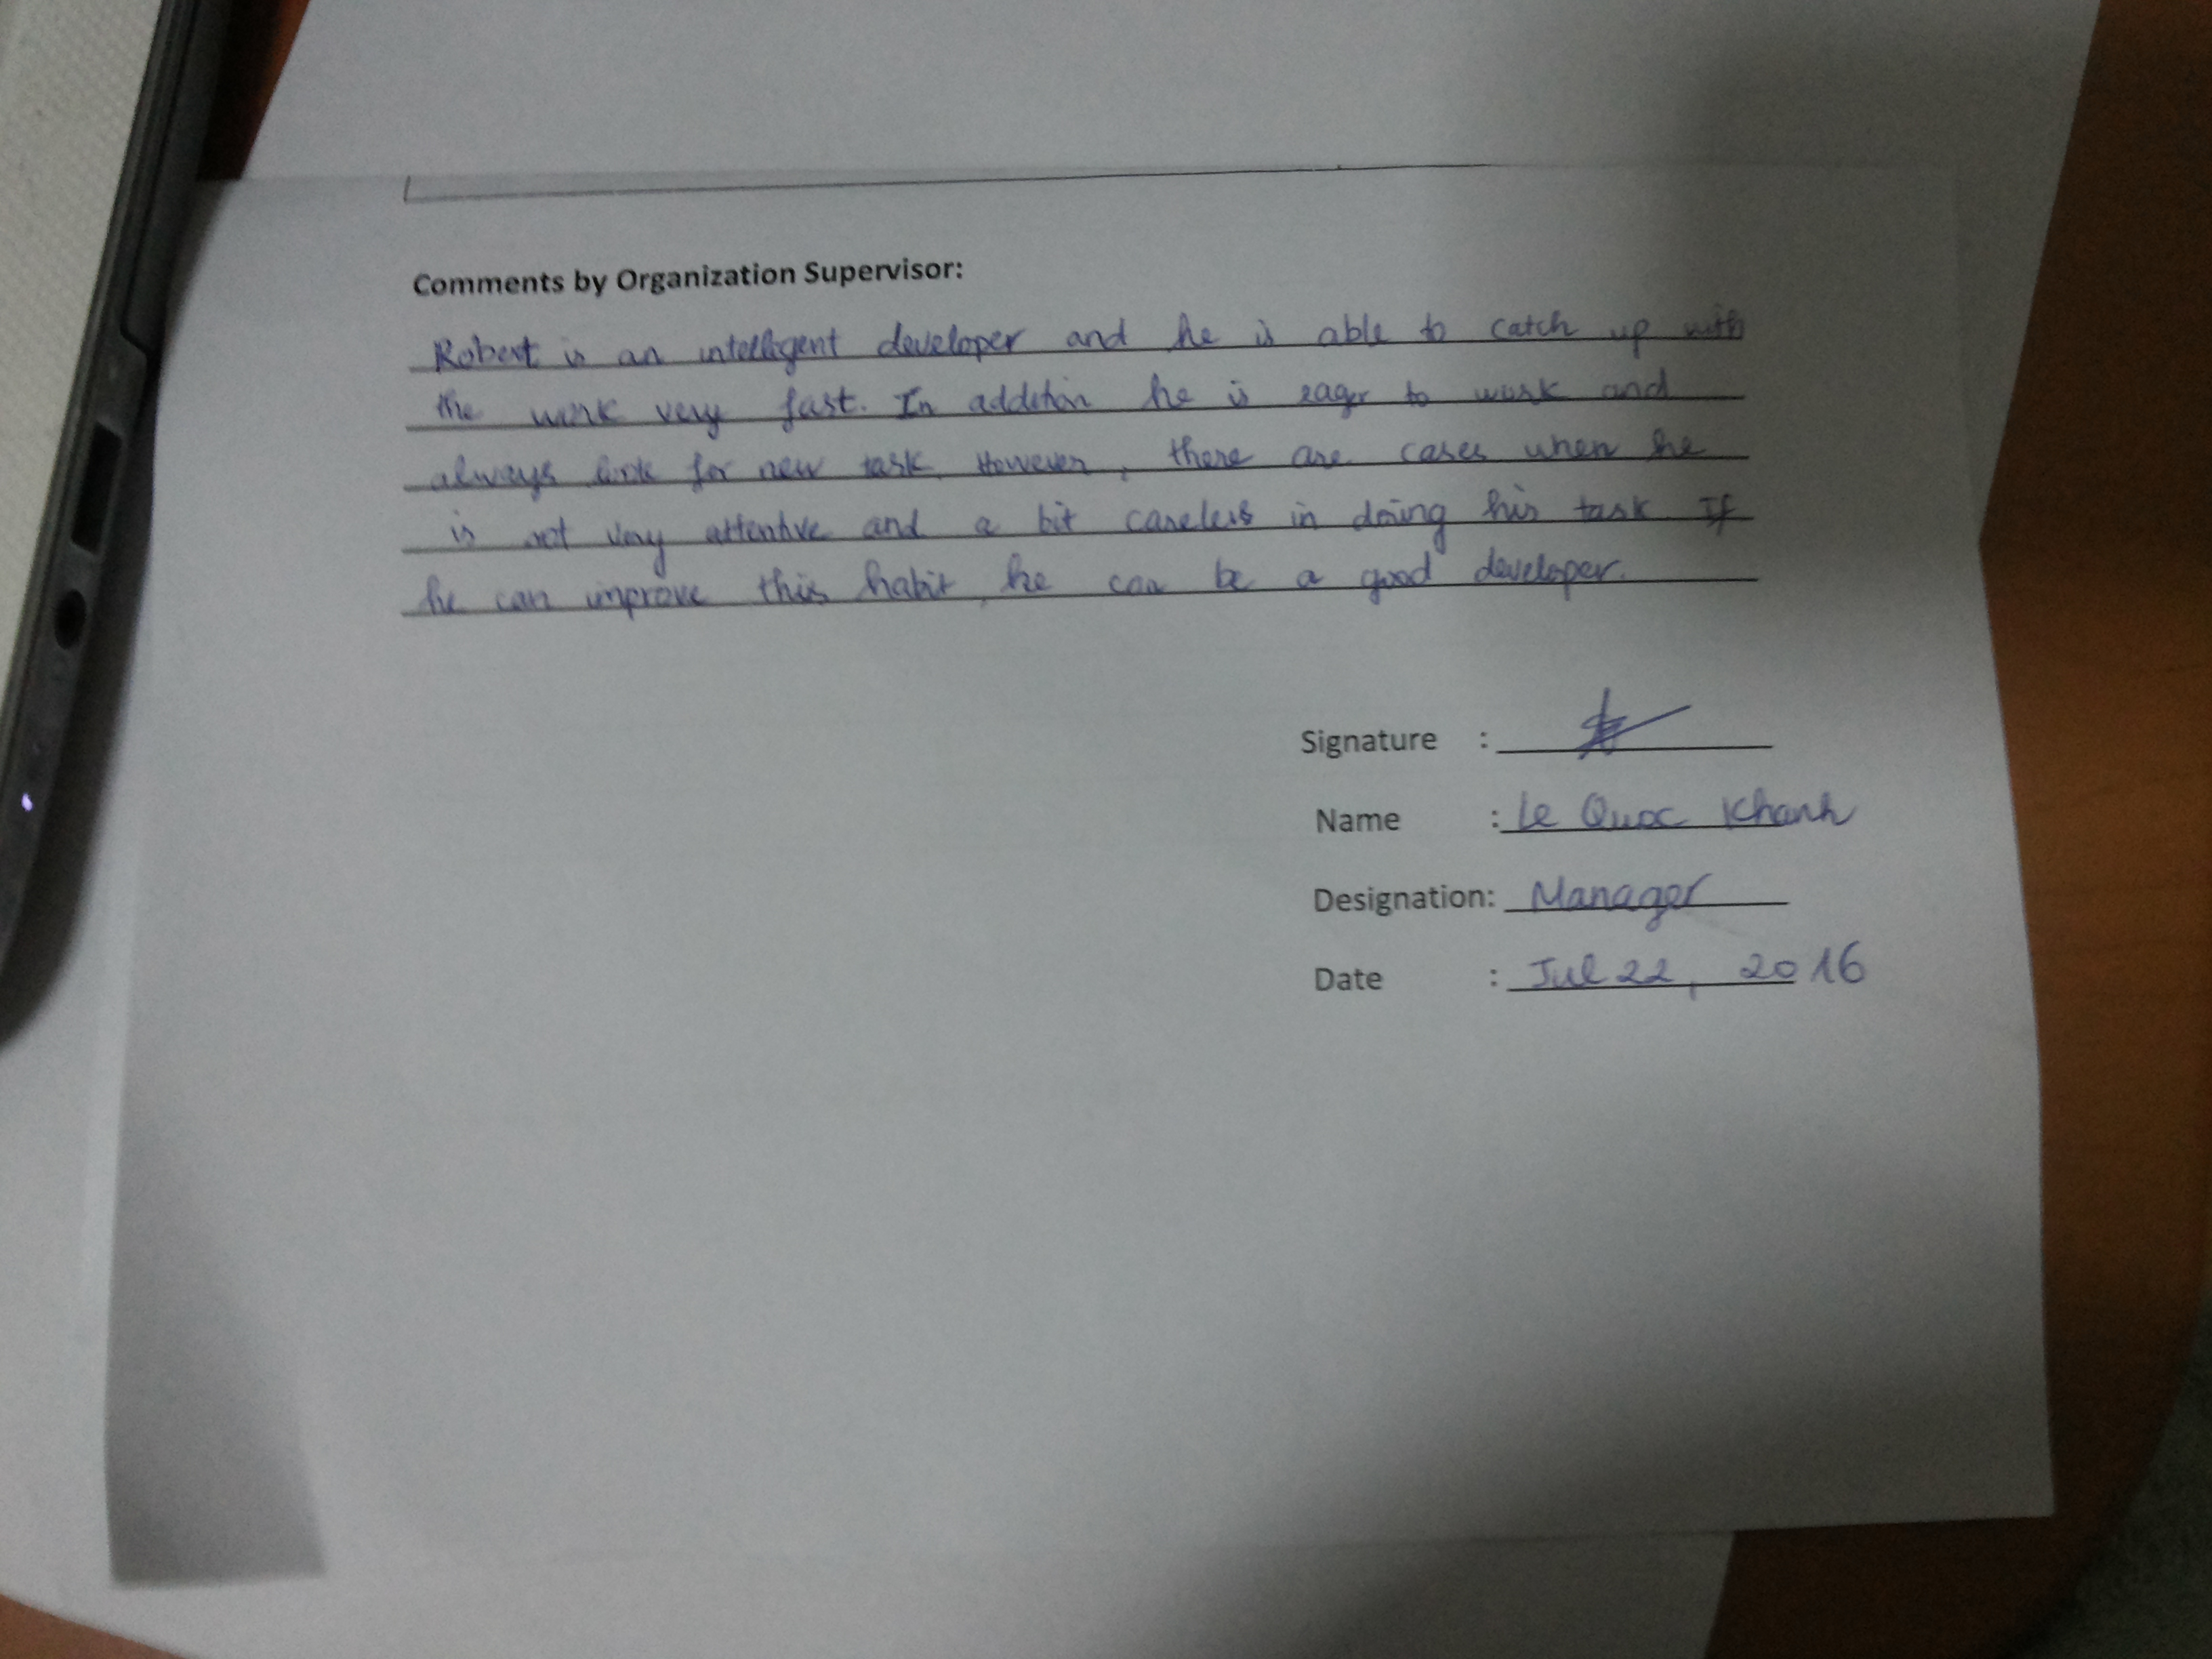 Comments by Organization Supervisor:
Robert is an intelligent developer and he is able to catch up with
the work very fast. In addition he is eager to work and
always look for new task. However, there are cases when he
is not very attentive and a bit careless in doing his task If
he can improve this habit, he can be a good developer.
Signature :
Name : Le Quoc Khanh
Designation: Manager
Date : Jul 22, 2016